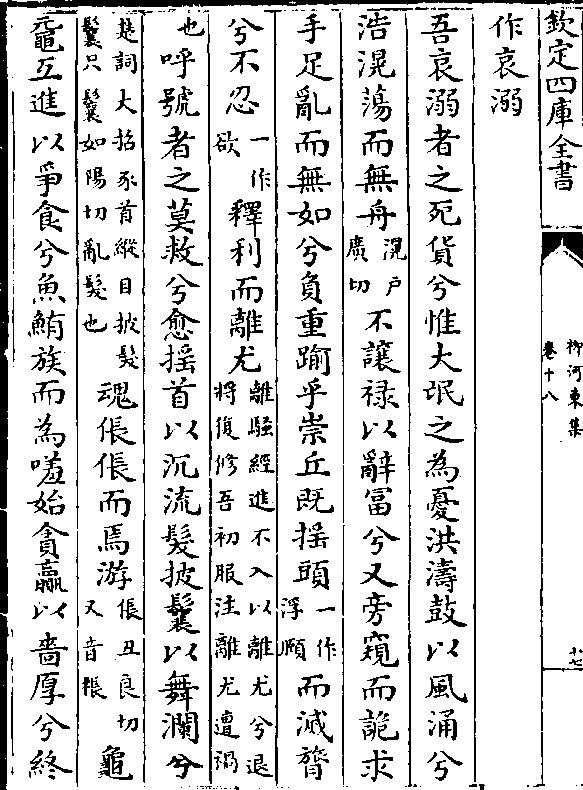 欽定四庫全書
柳河東集
卷十八
十七
作哀溺
吾哀溺者之死貨兮惟大氓之為憂洪濤鼓以風涌兮
浩滉蕩而無舟滉户廣切不讓禄以辭富兮又旁窺而詭求
手足亂而無如兮負重踰乎崇丘既揺頭一作浮頤而滅膂
兮不忍一作欲釋利而離尤離騷經進不入以離尤兮退將復修吾初服注離尤遭禍
也呼號者之莫救兮愈揺首以沉流髮披鬤以舞瀾兮
楚詞大招豕首縱目披髮鬤只鬤如陽切亂髮也魂倀倀而焉游倀丑良切又音棖龜
黿互進以爭食兮魚鮪族而為嗟始貪贏以嗇厚兮終